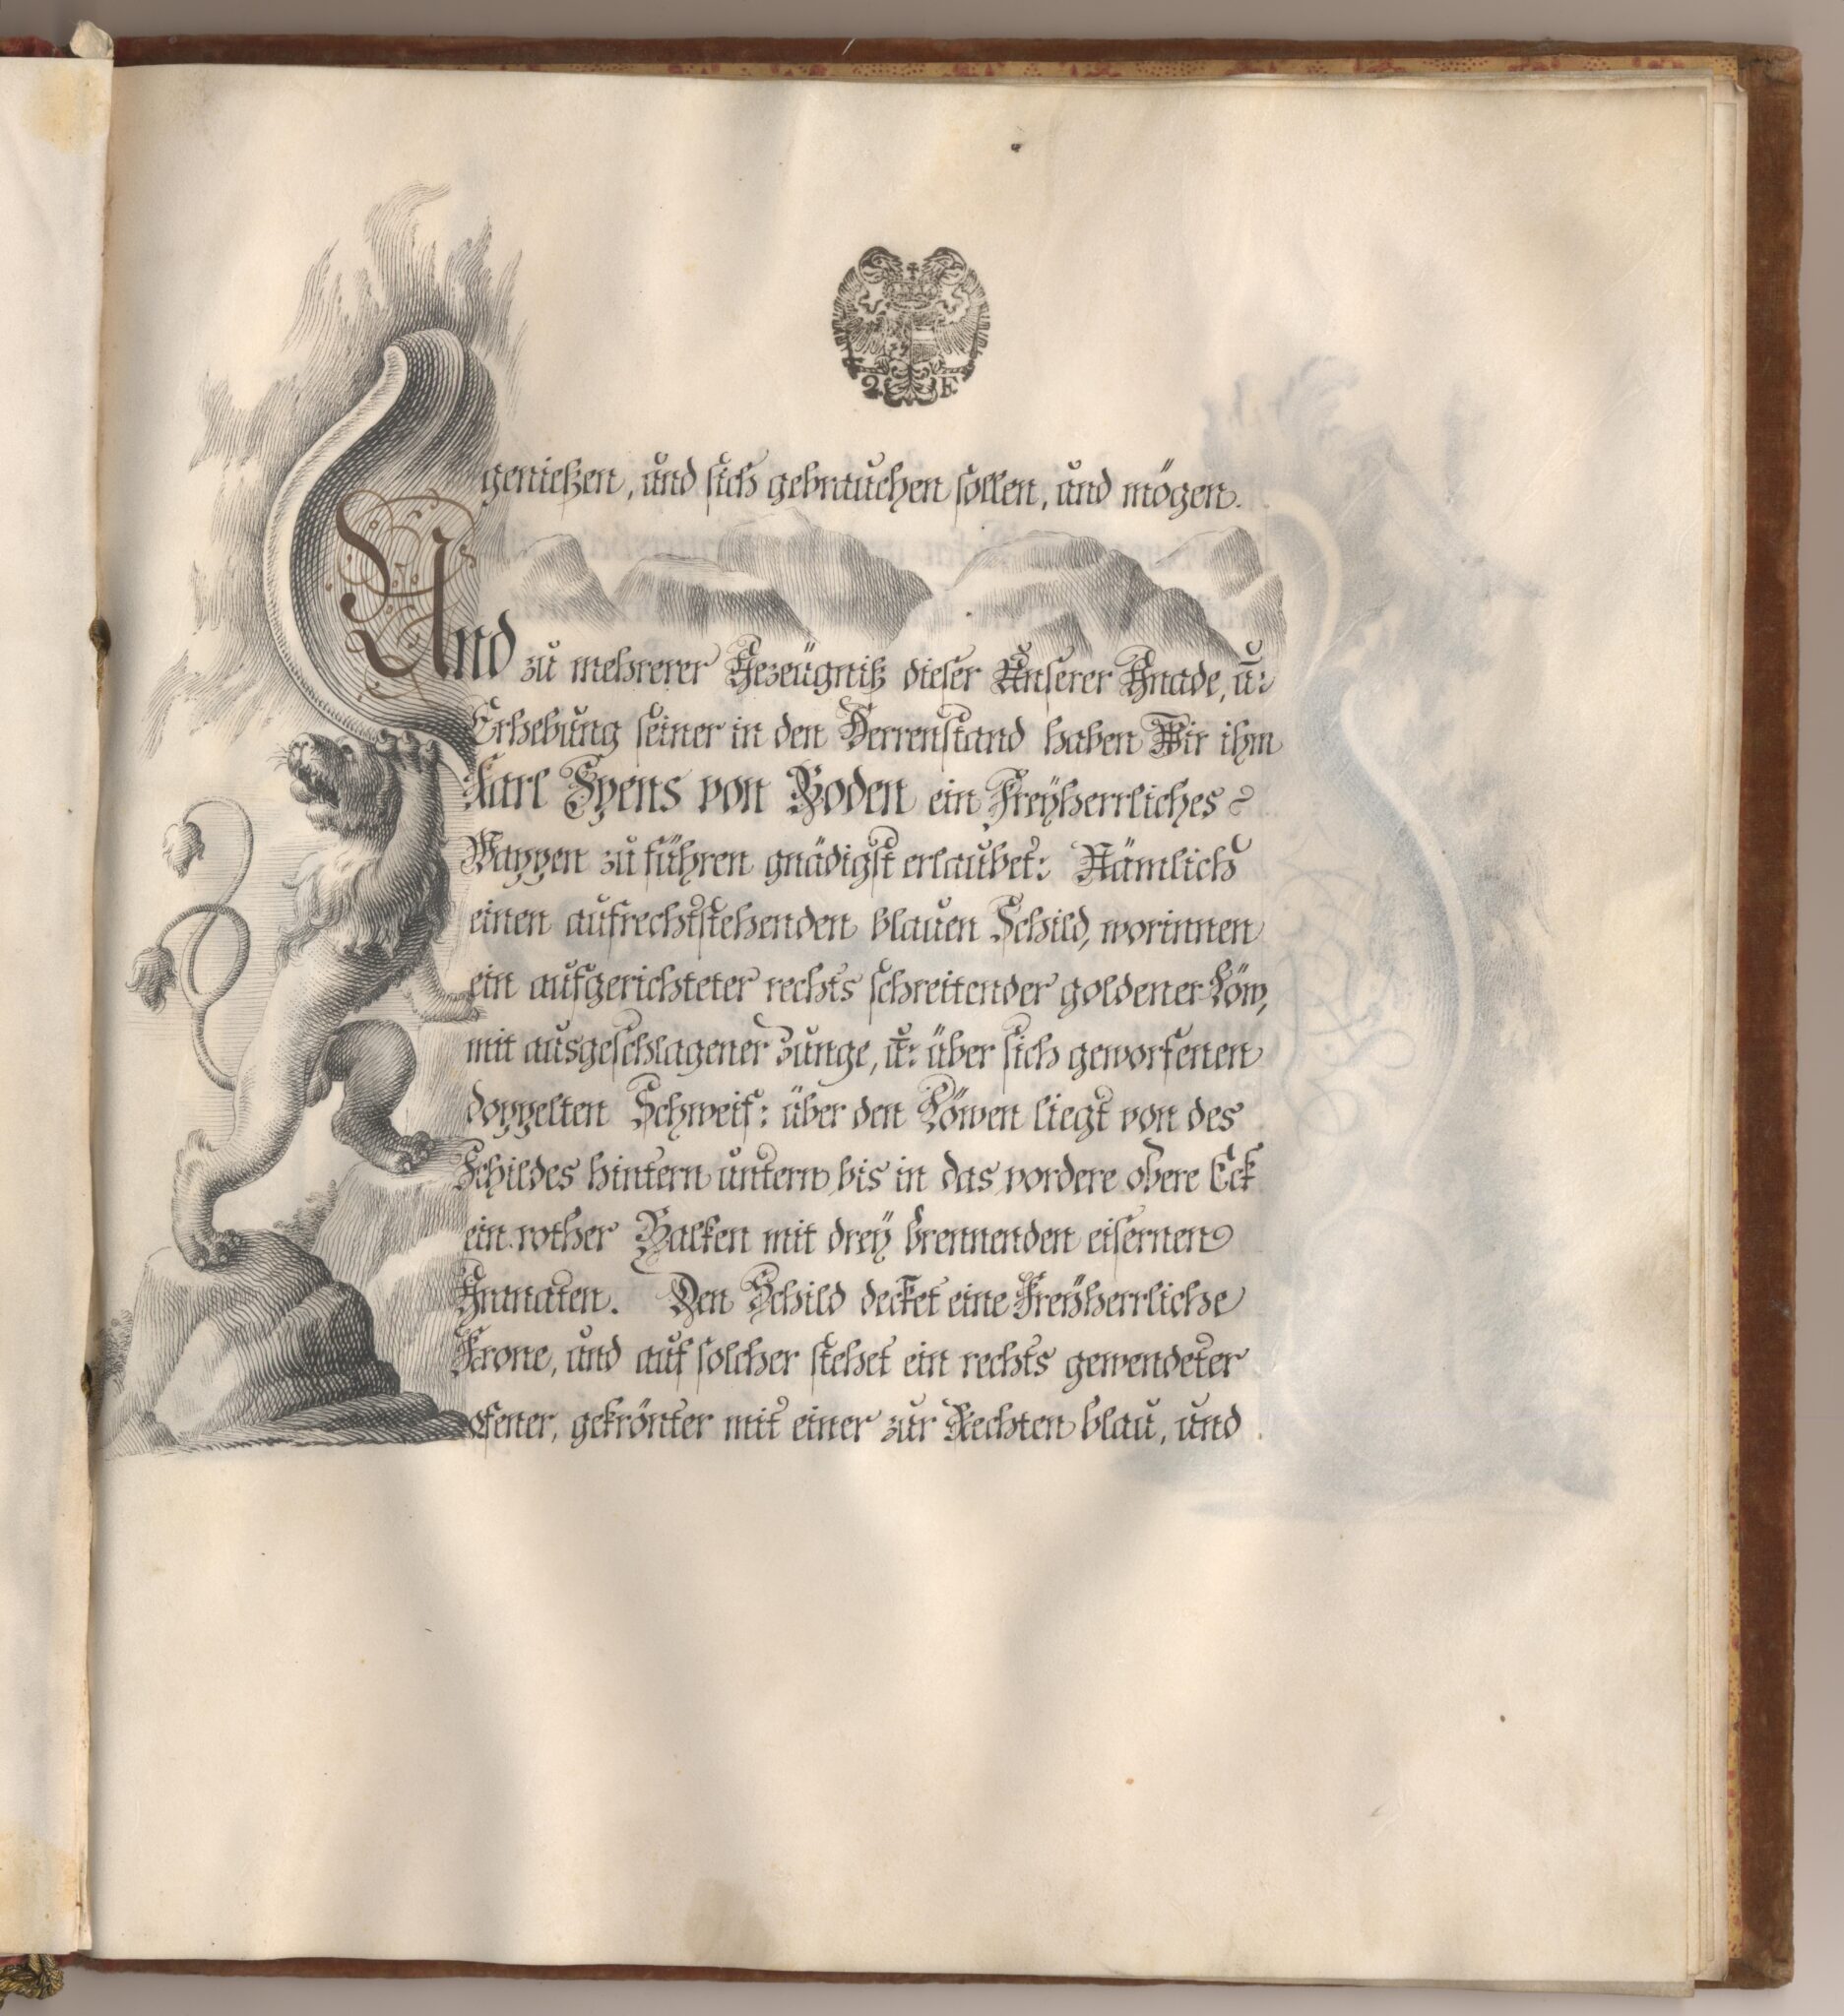 2. E.
genießen, und sich gebrauchen sollen, und mögen.
Und zu mehrerer Gezeügniß dieser Unserer Gnade, u:
Erhebung seiner in den Herrenstand haben Wir ihm
Karl Tyens von Boden ein Freÿherrliches
Wappen zu führen gnädigst erlaubet: Nämlich
einen aufrechtstehenden blauen Schild, worinnen
ein aufgerichteter rechts schreitender goldener Löw,
mit ausgeschlagener Zunge, u: über sich geworfenen
doppelten Schweif: über den Löwen liegt von des
Schildes hintern untern bis in das vordere obere Eck
ein rother Balken mit dreÿ brennenden eisernen
Granaten. Den Schild decket eine Freÿherrliche
Krone, und auf solcher stehet ein rechts gewendeter
ofener, gekrönter mit einer zur Rechten blau, und